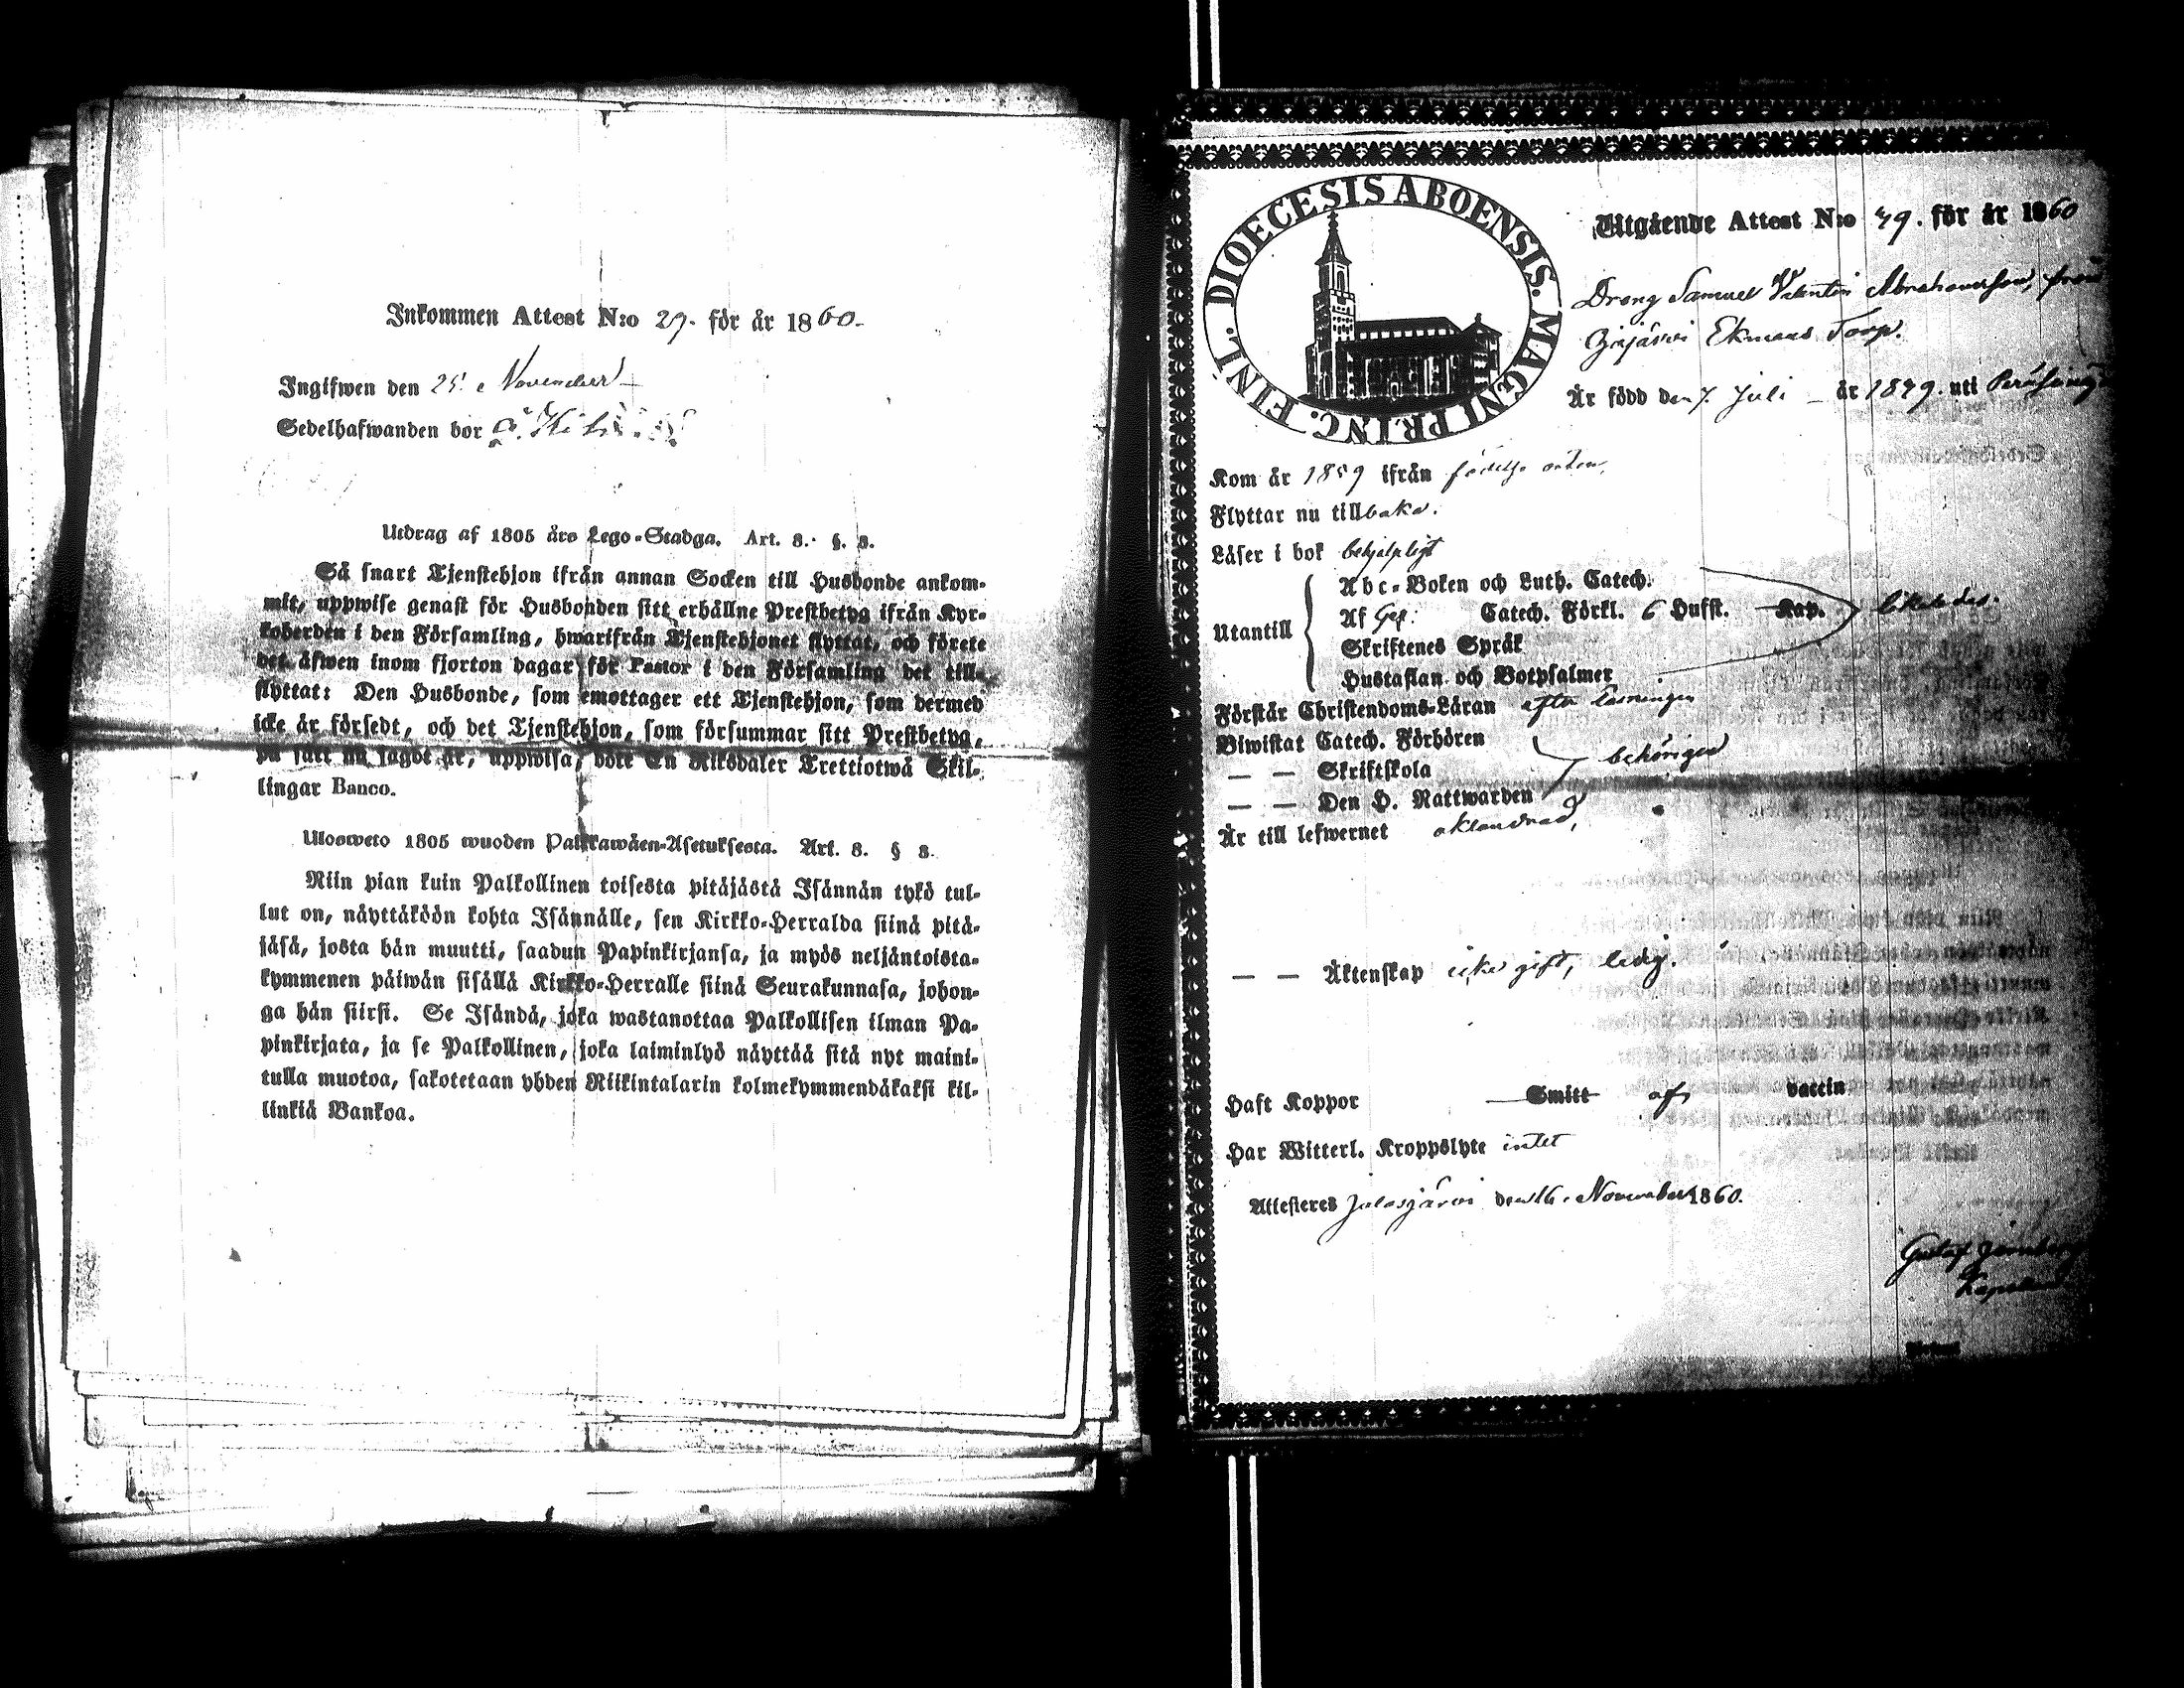 Inkommen Attest N:o 29. för år 1860.
Ingifwen den 25. November
Sedelhafwanden bor
Utdrag af 1805 års Lego-Stadga. Art. 8. §. 8.
Så snart Tjenstehjon ifrån annan Socken till Husbonde ankom-
mit, uppwise genast för Husbonden sitt erhållne Prestbetyg ifrån Kyr-
koherden i den Församling, hwarifrån Tjenstehjonet flyttat, och förete
det äfwen inom fjorton dagar för Pastor i den Församling det till-
flyttat: Den Husbonde, som emottager ett Tjenstehjon, som dermed
icke är försedt, och det Tjenstehjon, som försummar sitt Prestbetyg,
på sätt nu sagdt är, uppwisa, böte En Riksdaler Trettiotwå Skil-
lingar Banco.
Ulosweto 1805 wuoden Palkkawäen-Asetuksesta. Art. 8. § 8.
Niin pian kuin Palkollinen toisesta pitäjästä Isännän tykö tul-
lut on, näyttäköön kohta Isännälle, sen Kirkko-Herralda siinä pitä-
jäsä, josta hän muutti, saadun Papinkirjansa, ja myös neljäntoista-
kymmenen päiwän sisällä Kirkko-Herralle siinä Seurakunnasa, johon-
ga hän siirsi. Se Isändä, joka wastanottaa Palkollisen ilman Pa-
pinkirjata, ja se Palkollinen, joka laiminlyö näyttää sitä nyt maini-
tulla muotoa, sakotetaan yhden Riikintalarin kolmekymmendäkaksi kil-
linkiä Bankoa.
DIOECESIS ABOENSIS. MAGNI PRINC. FINL.
Utgående Attest N:o 79. för år 1860
Dreng Samuel Valentin Abrahamsson, från
Ekmans Torp.
Är född den 7. Juli år 1839. uti
Kom år 1859 ifrån födelse orten,
Flyttar nu tillbaka.
Läser i bok behjelpligt
Utantill
Abc-Boken och Luth. Catech.
Af Gez. Catech. Förkl. 6 Hufst. Kap.
likaledes.
Skriftenes Språk
Hustaflan och Botpsalmer
Förstår Christendoms-Läran efter läsningen
Biwistat Catech. Förhören
— — Skriftskola
behörigen
— — Den H. Nattwarden
Är till lefwernet oklandrad,
— — Äktenskap icke gift, ledig.
Haft Koppor Smitt af vaccin
Har Witterl. Kroppslyte intet
Attesteras Jalasjärvi den 16 November 1860.
Gustaf
Kapellan